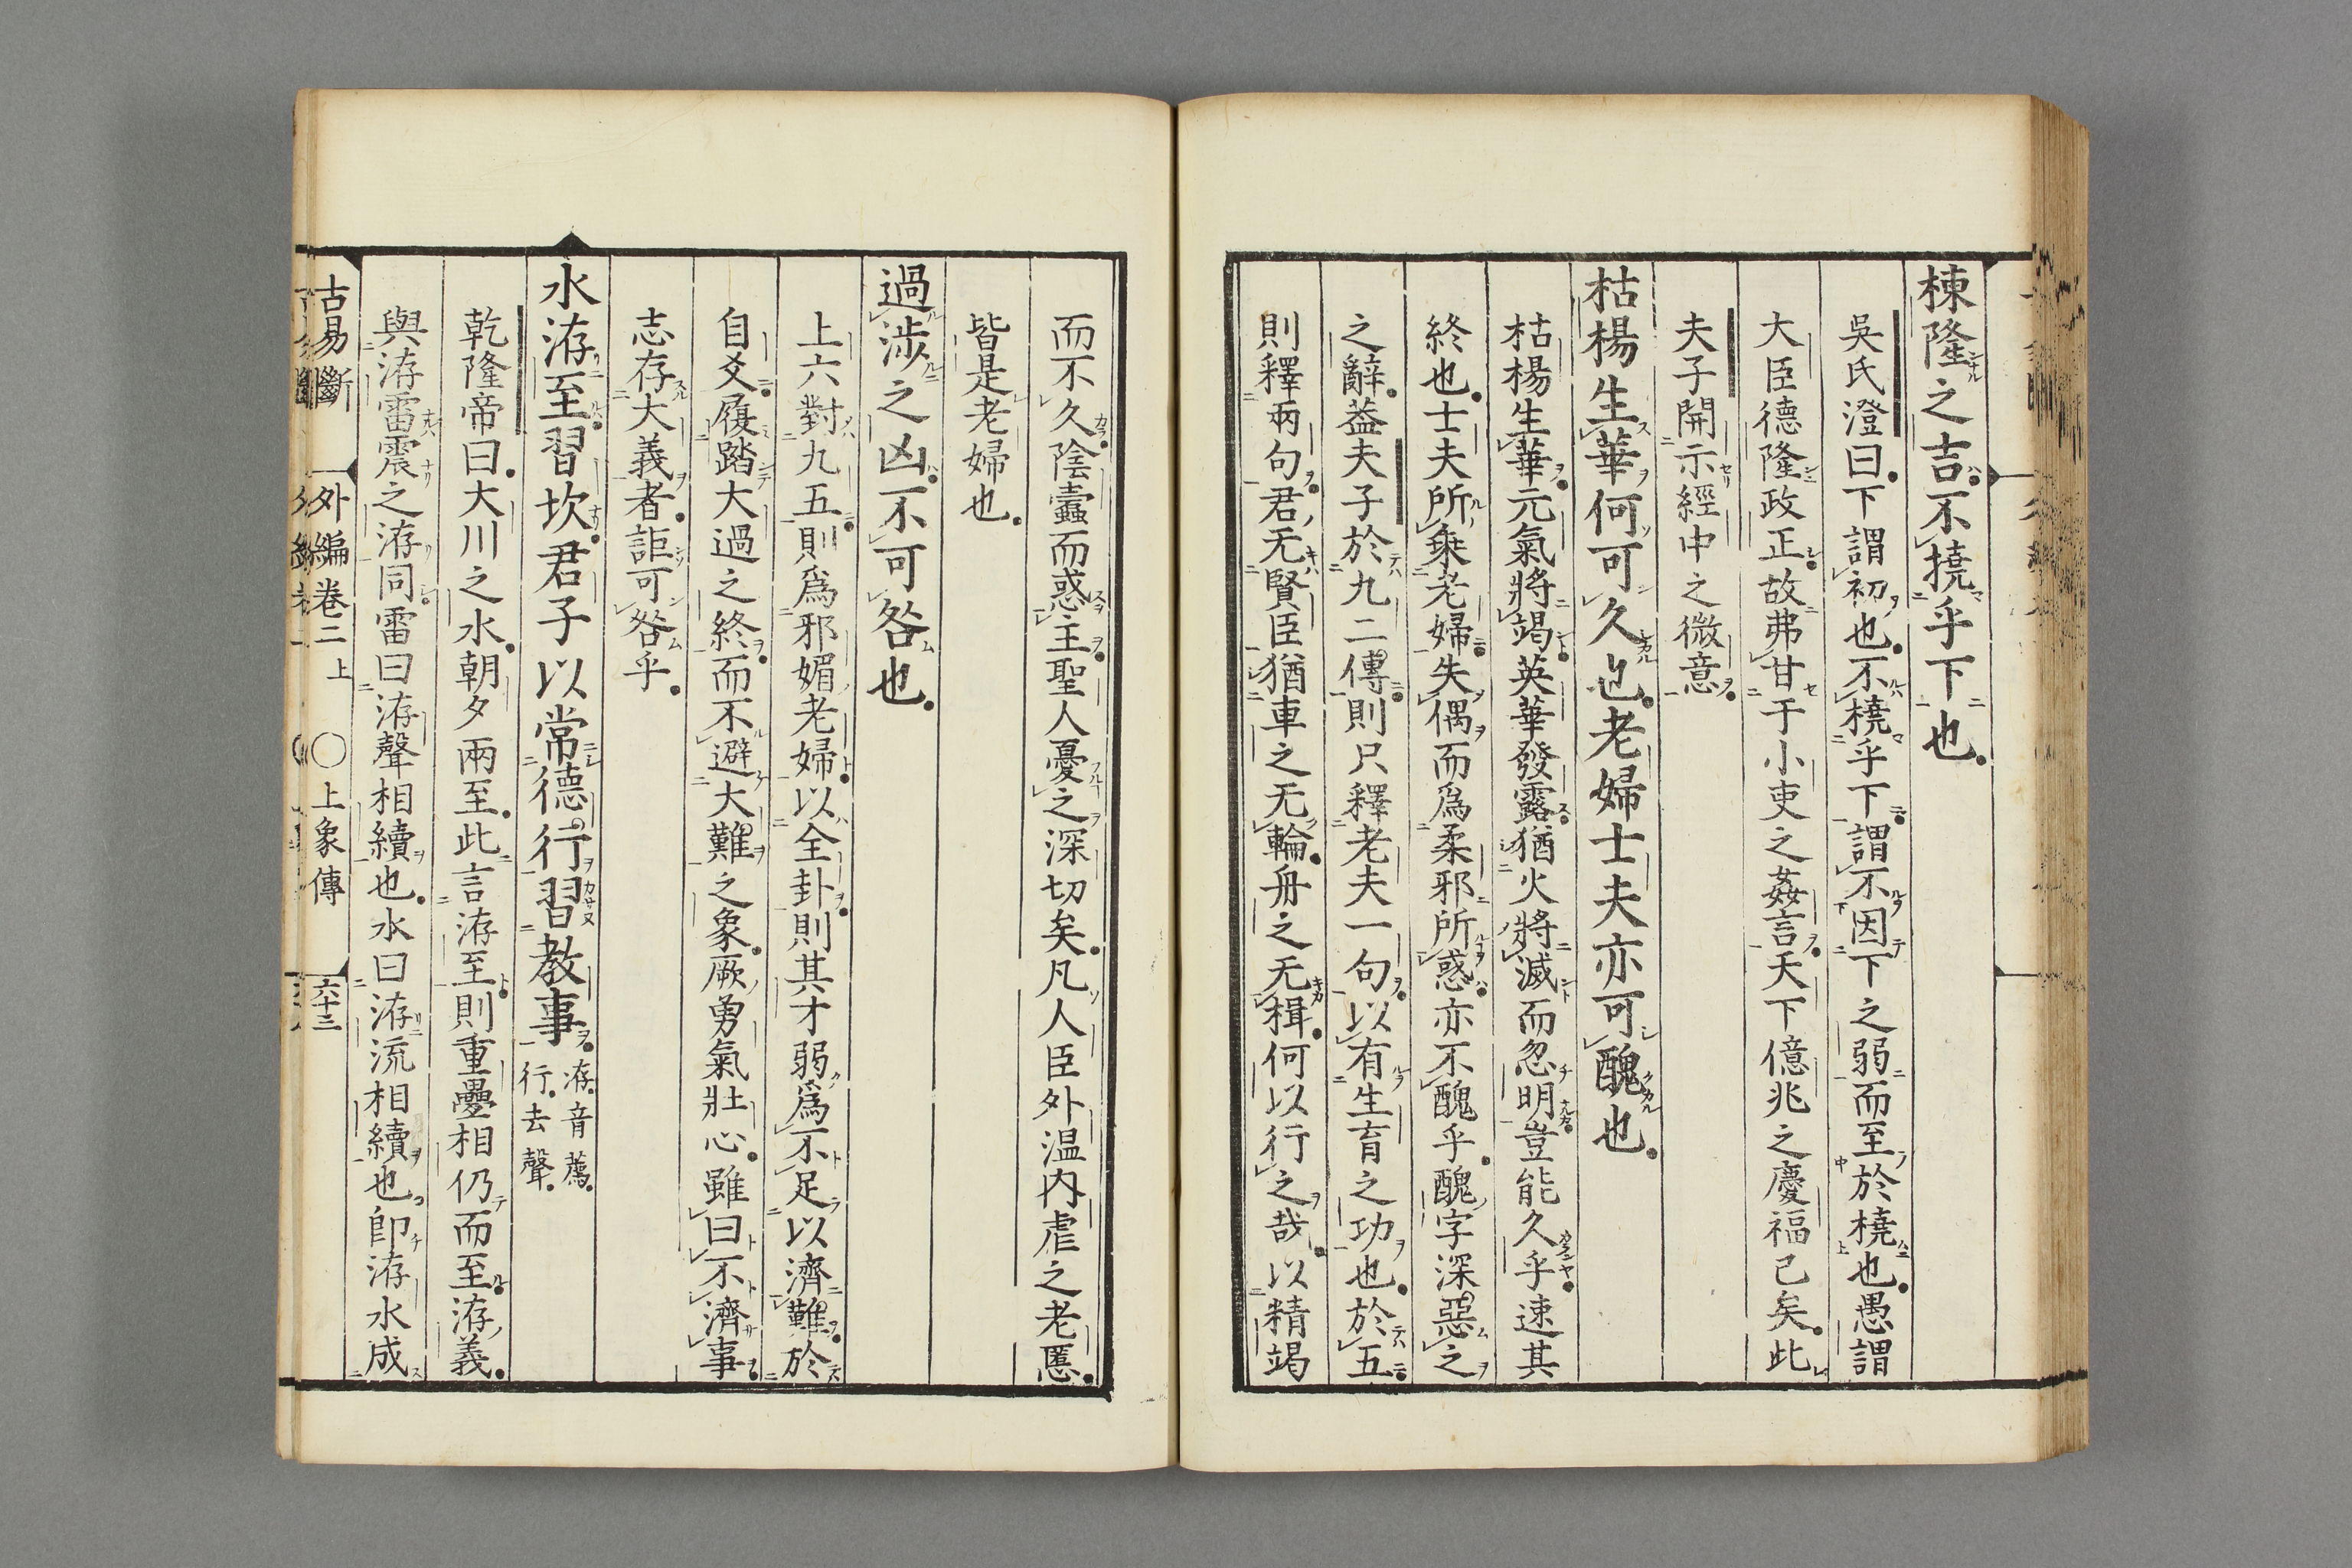 棟隆之吉不撓乎下也
吳氏澄曰下謂初也不橈乎下謂不因下之弱而至於橈也愚謂
大臣德隆政正故弗甘于小吏之姦言天下億兆之慶福已矣此
夫子開示經中之微意
枯楊生華何可久也老婦士夫亦可醜也
枯楊生華元氣將竭英華發露猶火將滅而忽明豈能久乎速其
終也士夫所乘老婦失偶而爲柔邪所惑亦不醜乎醜字深惡之
之辭葢夫子於九二傳則只釋老夫一句以有生育之功也於五
則釋兩句君无賢臣猶車之无輪舟之无楫何以行之哉以精竭
而不久陰蠹而惑主聖人憂之深切矣凡人臣外温内虐之老慝
皆是老婦也
過涉之凶不可咎也
上六對九五則爲邪媚老婦以全卦則其才弱爲不足以濟難於
自爻履踏大過之終而不避大難之象厥勇氣壯心雖曰不濟事
志存大義者詎可咎乎
水洊至習坎君子以常德行習教事 洊音薦行去聲
乾隆帝曰大川之水朝夕兩至此言洊至則重疊相仍而至洊義
與洊雷震之洊同雷曰洊聲相續也水曰洊流相續也卽洊水成
古易斷 外編卷二上 〇上象傳 六十三